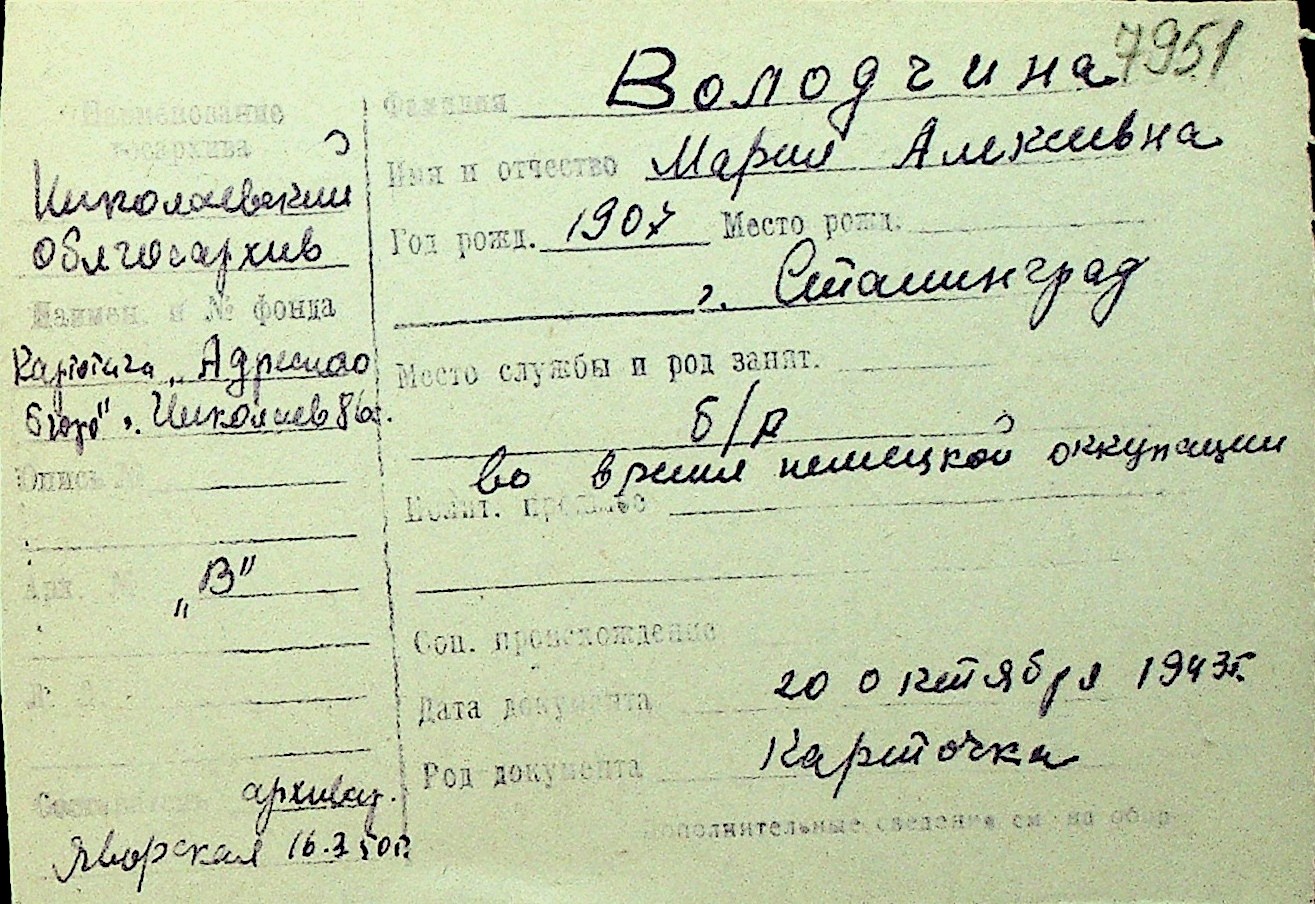 7951
Наименование
госархива
Николаевский
облгосархив
Наимен. и № фонда
Картотека „Адресное
бюро" г. Николаев
Опись №
Арх. №
„В"
Составитель архивар.
Яворская 16.3.50г.
Фамилия Володчина
Имя и отчество Мария Алексеевна
Год рожд. 1907 Место рожд.
г. Сталинград
Место службы и род занят.
б/р
во время немецкой оккупации
Полит. прошлое
Соц. происхождение
Дата документа 20 октября 1943г.
Род документа Карточка
Дополнительные сведения см на обор